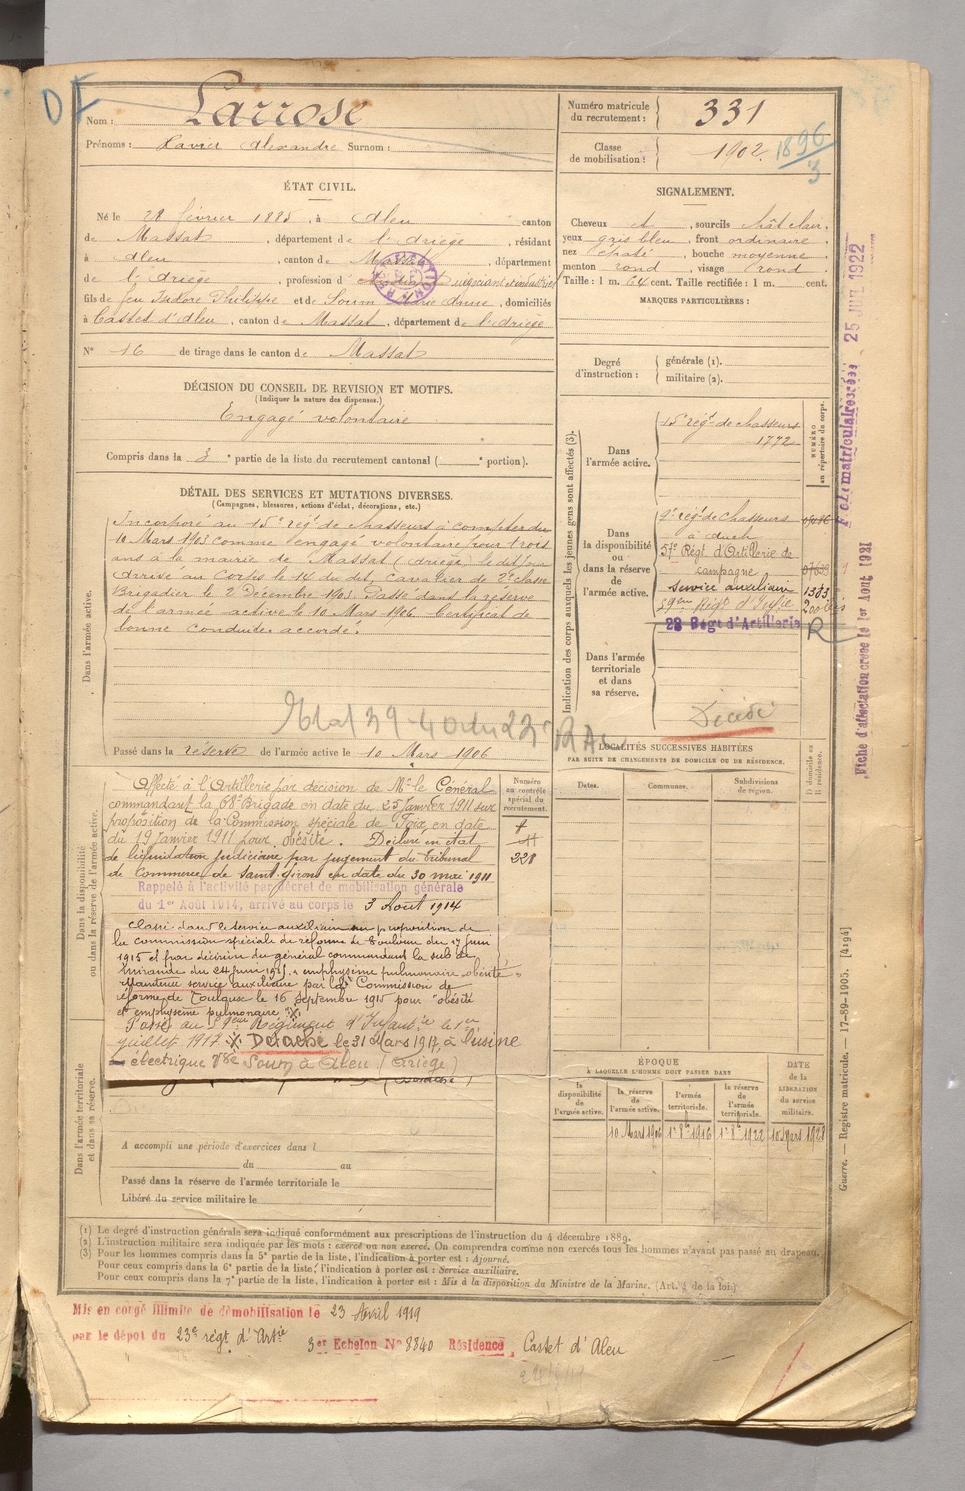 Nom : Larrose
Prénoms : Xavier Alexandre Surnom :
Numéro matricule du recrutement : 331
Classe de mobilisation : 1902.
1896/3
ÉTAT CIVIL.
Né le 28 février 1883, à Aleu canton
de Massat, département de l'Ariège, résidant
à Aleu, canton de Massat, département
de l'Ariège, profession d
fils de feu Isidore Philippe et de Soum Marie Anne, domiciliés
à Castet d'Aleu, canton de Massat, département de l'Ariège
N° 16 de tirage dans le canton de Massat
SIGNALEMENT.
Cheveux et, sourcils chât clair,
yeux gris bleu, front ordinaire
nez épaté, bouche moyenne
menton rond, visage rond
Taille : 1 m. 64 cent. Taille rectifiée : 1 m. cent.
MARQUES PARTICULIÈRES :
DÉCISION DU CONSEIL DE REVISION ET MOTIFS.
(Indiquer la nature des dispenses.)
Engagé volontaire
Compris dans la 3e partie de la liste du recrutement cantonal ( portion).
Degré d'instruction : générale (1).
militaire (2).
DÉTAIL DES SERVICES ET MUTATIONS DIVERSES.
(Campagnes, blessures, actions d'éclat, décorations, etc.)
Dans l'armée active.
Incorporé au 15e régt de chasseurs à compter du
10 Mars 1903 comme engagé volontaire pour trois
ans à la mairie de Massat (Ariège) le dit jour
Arrivé au Corps le 14 du dit, cavalier de 2e classe
Brigadier le 2 Décembre 1903. Passé dans la réserve
de l'armée active le 10 Mars 1906. Certificat de
bonne conduite accordé.
Passé dans la réserve de l'armée active le 10 Mars 1906
Indication des corps auxquels les jeunes gens sont affectés (3).
NUMÉRO au répertoire du corps.
Dans l'armée active.
15e régt de chasseurs
1772
Dans la disponibilité ou dans la réserve de l'armée active.
9e régt de chasseurs
à Auch
57e Régt d'Artillerie de
campagne
Service auxiliaire 1303
59eme Régt d'Infie 200 bis
23 Régt d'Artillerie R
Dans l'armée territoriale et dans sa réserve.
Décédé
Dans la disponibilité ou dans la réserve de l'armée active.
Affecté à l'Artillerie par décision de Mr le Général
commandant la 68e Brigade en date du 25 Janvier 1911 sur
proposition de la Commission spéciale de Foix en date
du 19 Janvier 1911 pour obésité. Déclaré en état
de liquidation judiciaire par jugement du Tribunal
de Commerce de Saint-Girons en date du 30 mai 1911
Rappelé à l'activité par décret de mobilisation générale
du 1er Août 1914, arrivé au corps le 3 Août 1914
Classé dans le service auxiliaire sur proposition de
la commission spéciale de réforme de Toulouse du 17 Juin
1915 et par décision du général commandant la sub de
Mirande du 24 Juin 1915 "emphysème pulmonaire obésité"
Maintenu service auxiliaire par la Commission de
réforme de Toulouse le 16 septembre 1915 pour "obésité
et emphysème pulmonaire"
Passé au 59eme Régiment d'Infantie le 1er
juillet 1917 Détaché le 31 Mars 1917, à l'usine
électrique Vve Soum à Aleu (Ariège)
Numéro au contrôle spécial du recrutement.
328
LOCALITÉS SUCCESSIVES HABITÉES
PAR SUITE DE CHANGEMENTS DE DOMICILE OU DE RÉSIDENCE.
Dates. Communes. Subdivisions de région. D domicile ou R résidence.
Dans l'armée territoriale et dans sa réserve.
A accompli une période d'exercices dans l
du au
Passé dans la réserve de l'armée territoriale le
Libéré du service militaire le
ÉPOQUE
À LAQUELLE L'HOMME DOIT PASSER DANS
la disponibilité de l'armée active. la réserve de l'armée active. l'armée territoriale. la réserve de l'armée territoriale.
DATE de la LIBÉRATION du service militaire.
10 Mars 1906 1er 8bre 1916 1er 8bre 1922 10 Mars 1928
(1) Le degré d'instruction générale sera indiqué conformément aux prescriptions de l'instruction du 4 décembre 1889.
(2) L'instruction militaire sera indiquée par les mots : exercé ou non exercé. On comprendra comme non exercés tous les hommes n'ayant pas passé au drapeau.
(3) Pour les hommes compris dans la 5e partie de la liste, l'indication à porter est : Ajourné.
Pour ceux compris dans la 6e partie de la liste, l'indication à porter est : Service auxiliaire.
Pour ceux compris dans la 7e partie de la liste, l'indication à porter est : Mis à la disposition du Ministre de la Marine. (Art. 4 de la loi)
Mis en congé illimité de démobilisation le 23 Avril 1919
par le dépôt du 23e régt d'Artie 3er Echelon N° 8840 Résidence, Castet d'Aleu
Guerre. — Registre matricule. — 17-89-1905. [4194]
Fiche d'affectation créée le 1er Août 1921
25 JUIL 1922